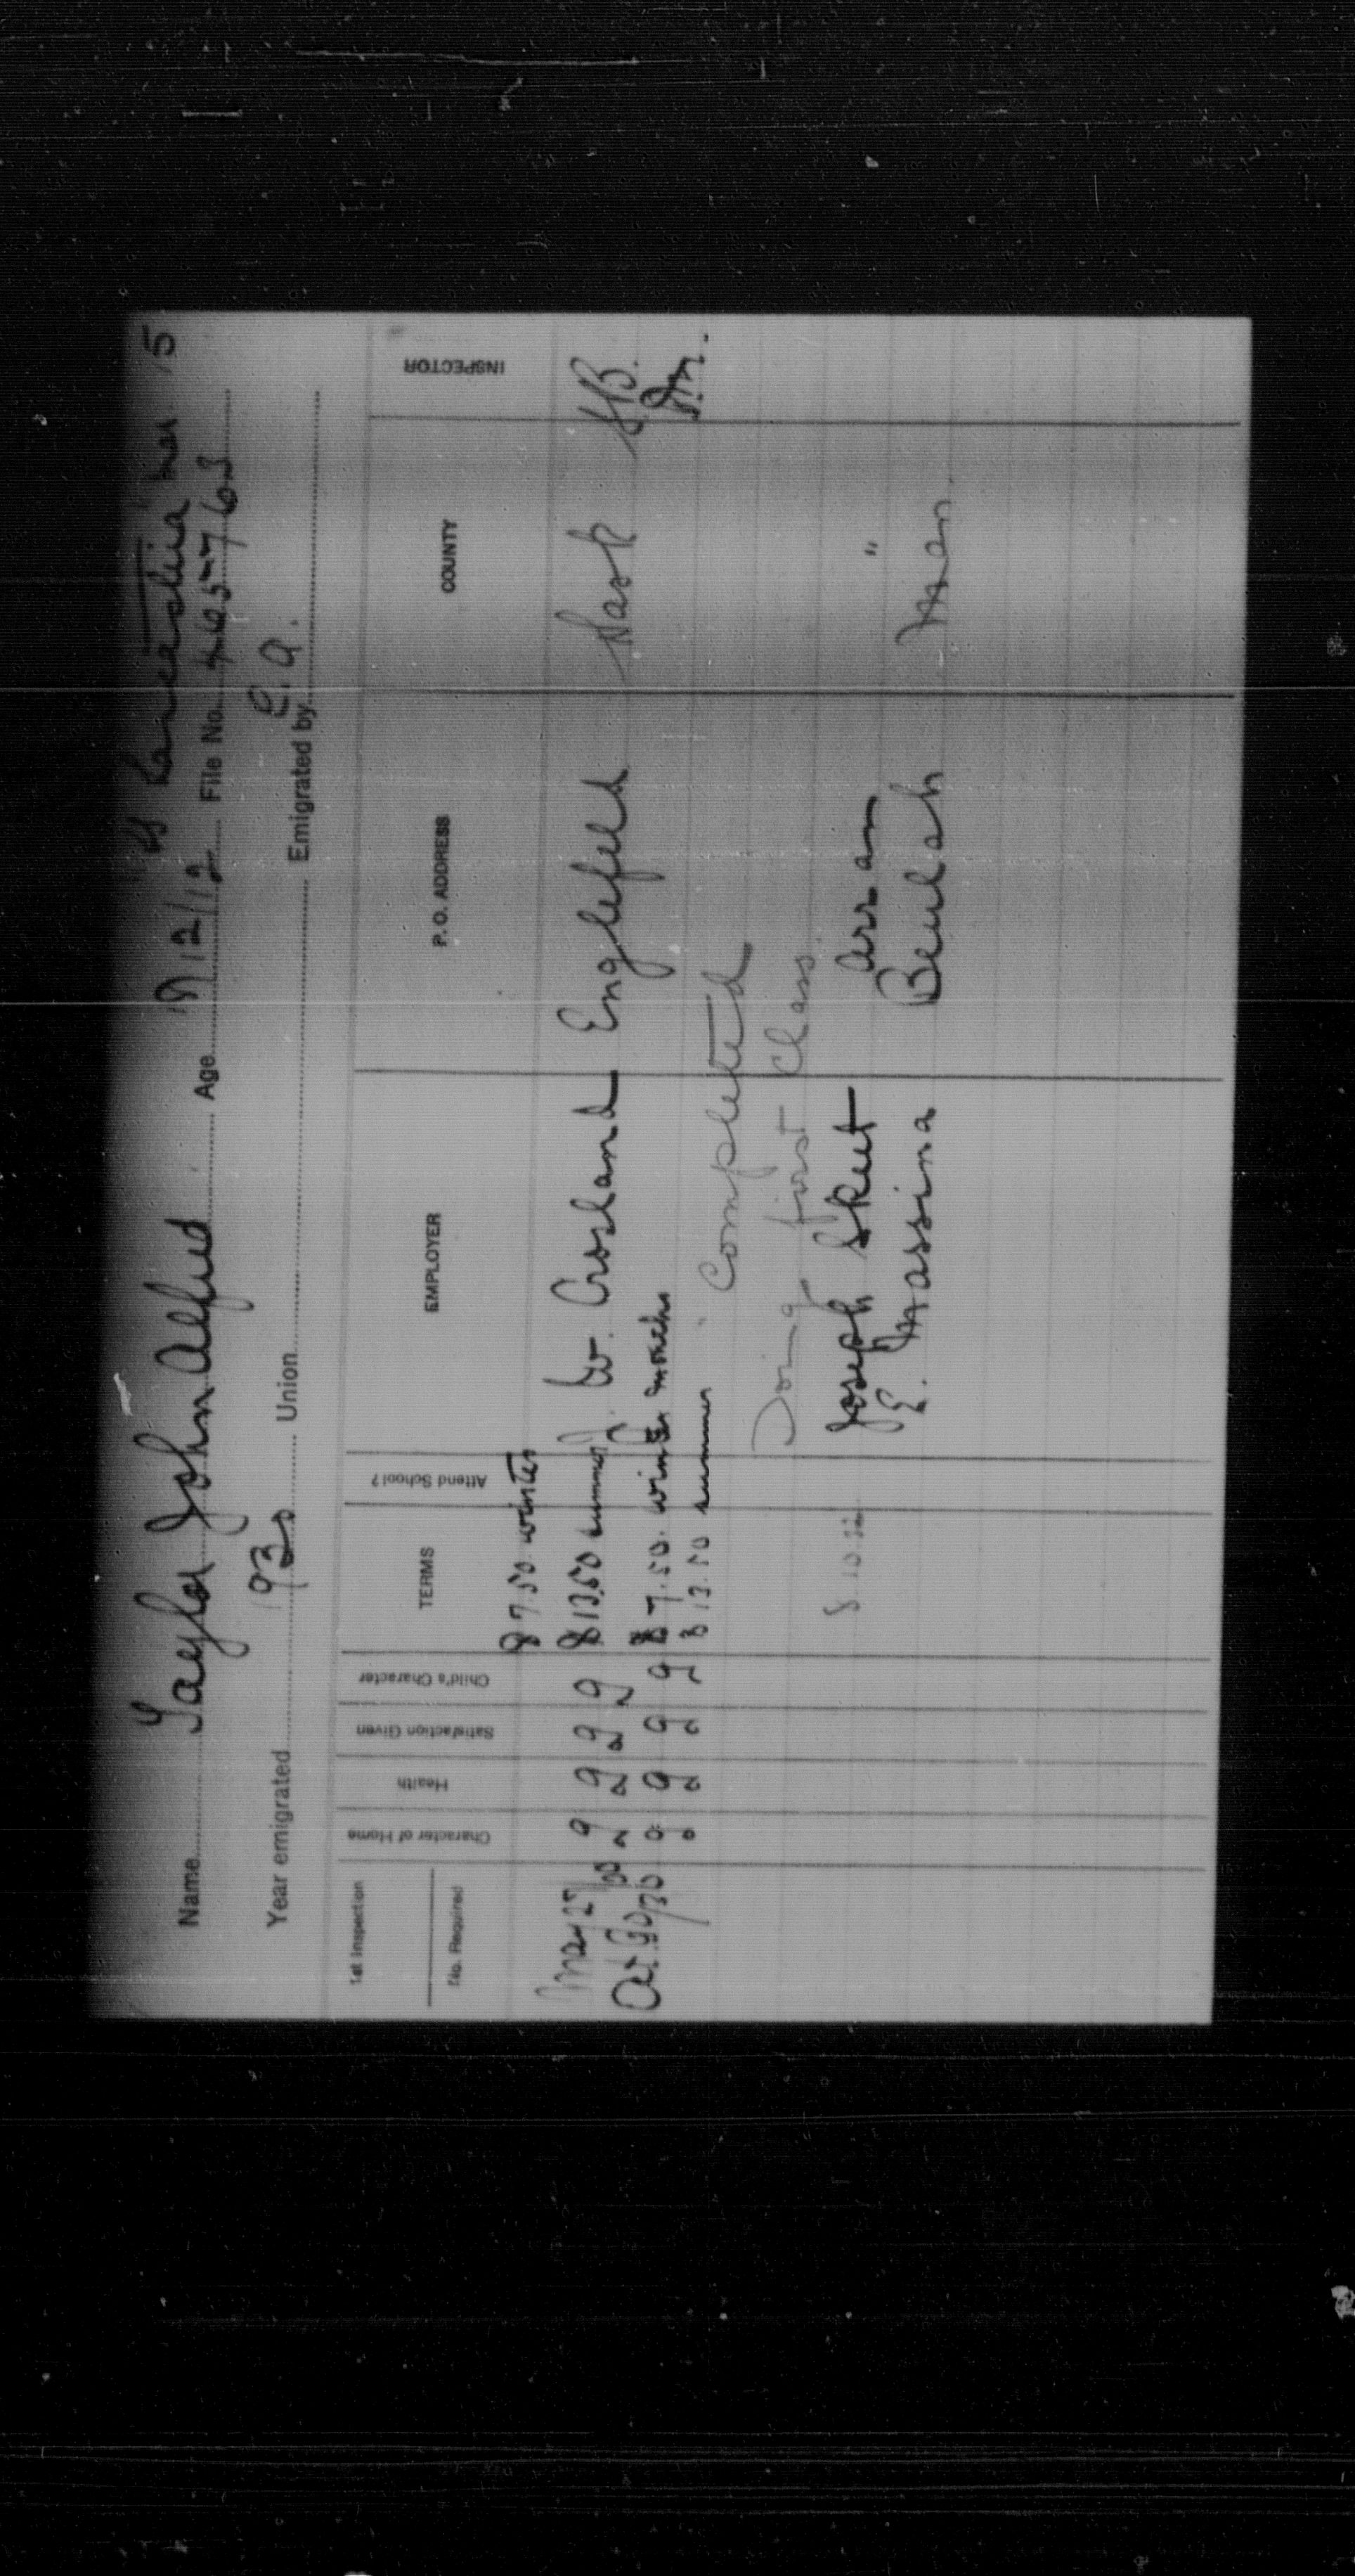 Name Taylor John Alfred Age 17 12/12 File No. 465763 "Lancastria" Mar 15
Year emigrated 1930 Union Emigrated by C.A.
1st Inspection
No. Required Character of Home Health Satisfaction Given Child's Character TERMS Attend School? EMPLOYER P. O. ADDRESS COUNTY INSPECTOR
$7.50 winter
May 27/30 g g g g $13.50 summer W. Crosland Englefeld Sask
Oct 30/30 g g g g $7.50 winter months
$13.50 summer Completed
Doing first Class
8 10 32 Joseph Skeet Arran "
E. Massina Beulah Man.